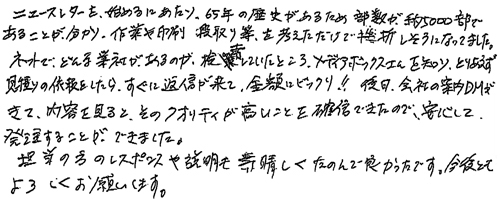 ニュースレターを、始めるにあたり、65年の歴史があるため部数が約5000部で
あることが分かり、作業や印刷、段取り等、を考えただけで挫折しそうになってました。
ネットで、どんな業社があるのが、検索していたところ、メディアボックスさんを知り、とりあえず
見積りの依頼をしたら、すぐに返信が来て、金額にビックリ!! 後日、会社の案内DMが
きて、内容を見ると、そのクオリティが高いことを確信できたので、安心して
発注することが、できました。
担当の方のレスポンスや説明も素晴しくたのんで良かったです。今後とも
よろしくお願いします。